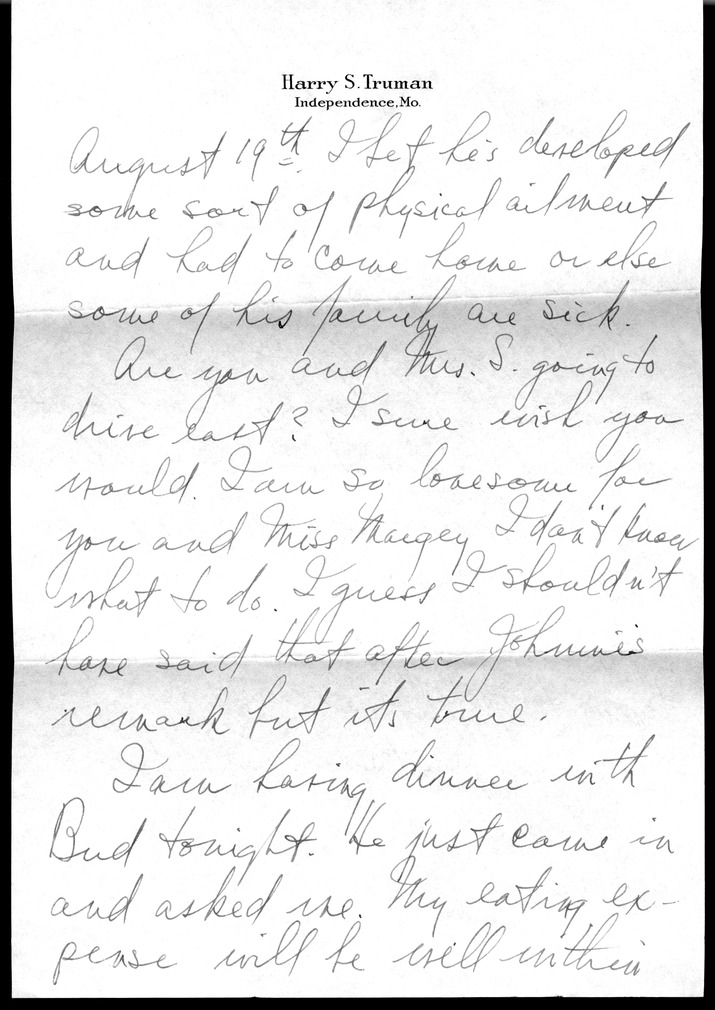 Harry S. Truman
Independence, Mo.
August 19th. I bet he's developed
some sort of physical ailment
and had to come home or else
some of his family are sick.
Are you and Mrs. S. going to
drive east? I sure wish you
would. I am so lonesome for
you and Miss Margey I don't know
what to do. I guess I shouldn't
have said that after Johnnie's
remark but its true.
I am having dinner with
Bud tonight. He just came in
and asked me. My eating ex-
pense will be well within